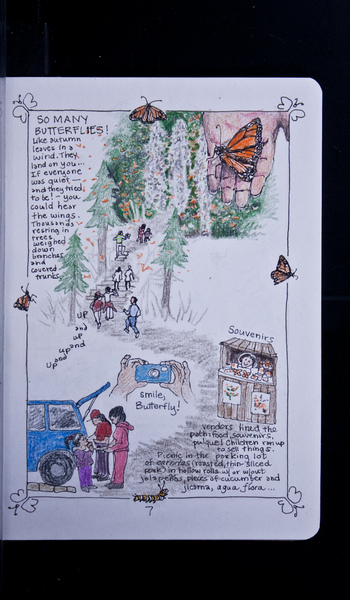 SO MANY
BUTTERFLIES!
Like autumn
leaves in a
wind. They
land on you...
If everyone
was quiet—
and they tried
to be! – you
could hear
the wings.
Thousands
resting in
trees,
weighed
down
branches
and
covered
trunks.
up
and
up
and
up
and
up
Souvenirs
smile,
Butterfly!
vendors lined the
path: food, souvenirs,
Children run up
to sell things.
Picnic in the parking lot
of carnitas (roasted, thin-sliced
pork) in hollow rolls w/ or w/out
jalapeños, pieces of cucumber and
jicama, agua flora...
7